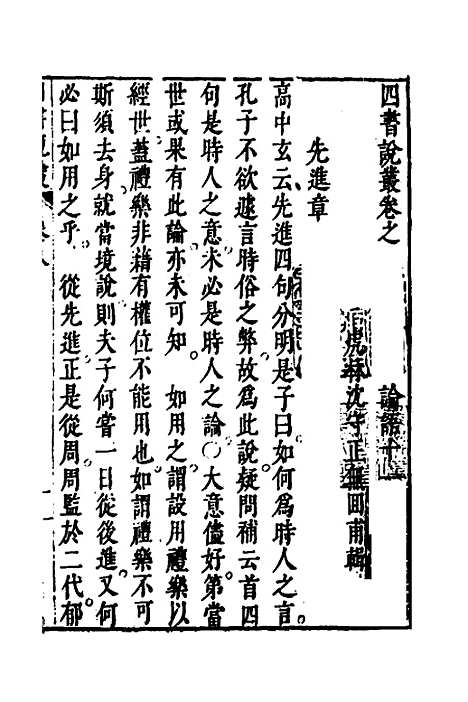 四書說叢卷之　論語十一
虎林沈守正無回甫輯
先進章
高中玄云先進四句分明是子曰如何爲時人之言
孔子不欲遽言時俗之弊故爲此說疑問補云首四
句是時人之意未必是時人之論○大意儘好第當
世或果有此論亦未可知。如用之謂設用禮樂以
經世蓋禮樂非藉有權位不能用也如謂禮樂不可
斯須去身就當境說則夫子何嘗一日從後進又何
必曰如用之乎　從先進正是從周周監於二代郁